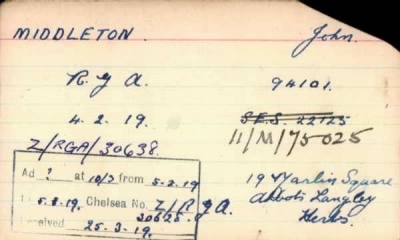 MIDDLETON. John.
R.G.A. 94101.
4. 2. 19. S.E.S. 22125
Z/RGA/30638. 11/M/75025
Ad ? at 10/3 from 5-2-19
5.2.19. Chelsea No. Z/R.G.A.
30625.
Received 25-3-19.
19 Marlin Square
Abbots Langley
Herts.